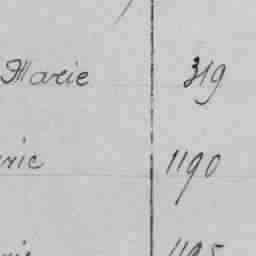 Marie 319
rie 1190
1195